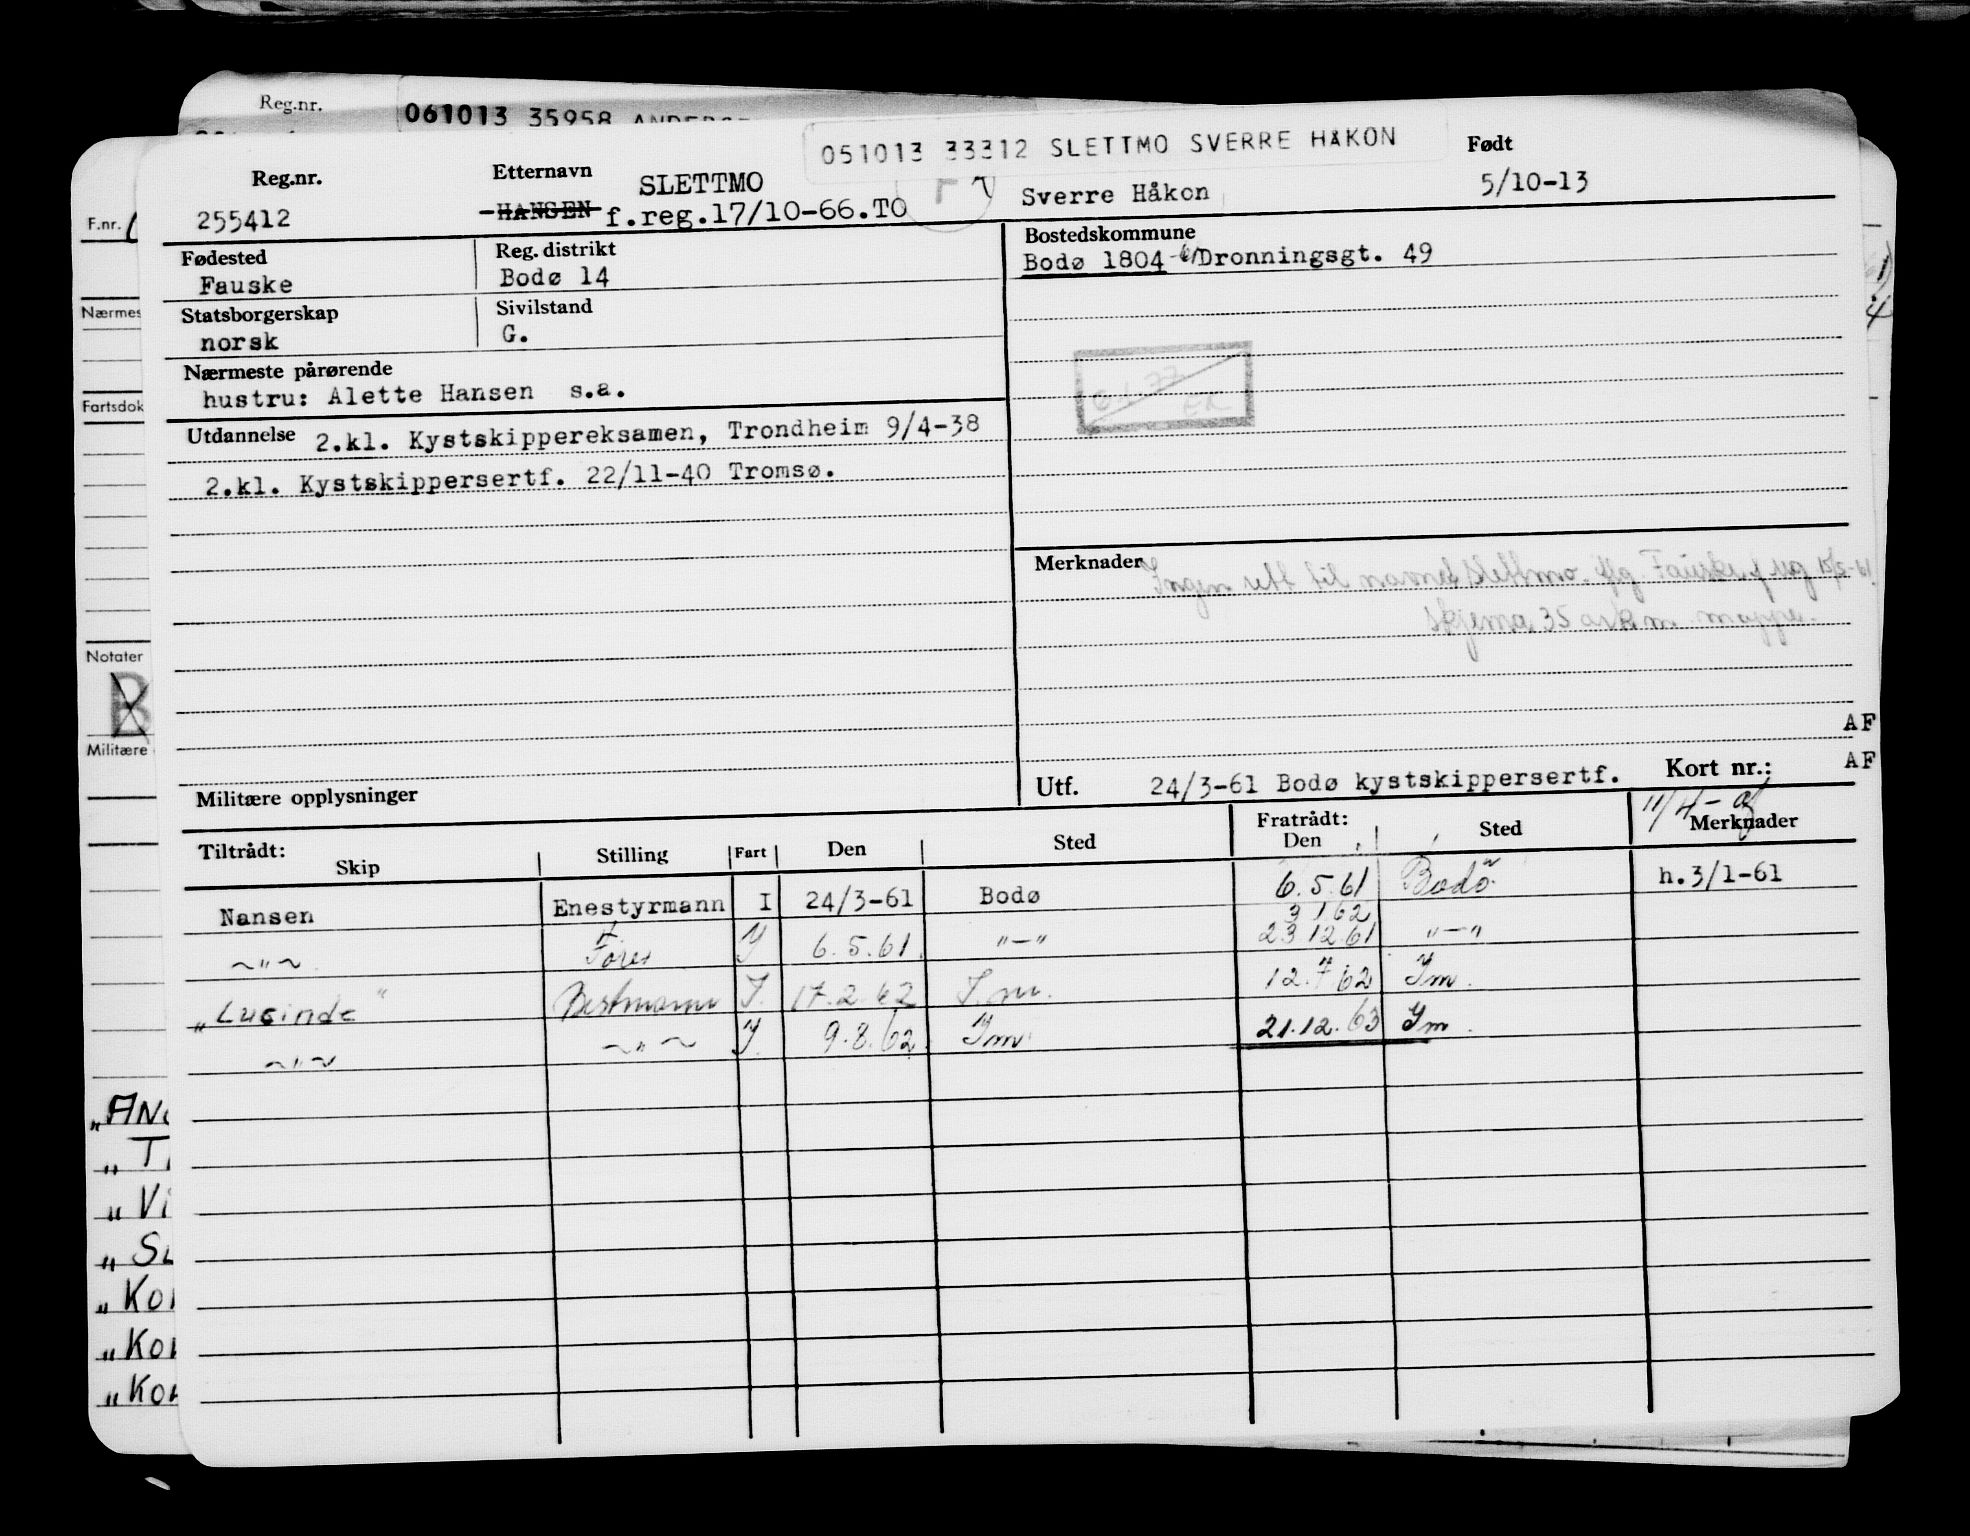 Reg.nr.
061013 35958
051013 33312 SLETTMO SVERRE HÅKON
Reg.nr.
Etternavn
Født
255412
SLETTMO
HANSEN f.reg.17/10-66.TO
Sverre Håkon
5/10-13
F.nr.
Fødested
Fauske
Reg. distrikt
Bodø 14
Bostedskommune
Bodø 1804 Dronningsgt. 49
Statsborgerskap
norsk
Sivilstand
G.
Nærmeste pårørende
hustru: Alette Hansen s.a.
Utdannelse 2.kl. Kystskippereksamen, Trondheim 9/4-38
2.kl. Kystskippersertf. 22/11-40 Tromsø.
Merknader Ingen rett til navnet Slettmo. Fauske
skjema 35 ark m. mappe.
Notater
B
Militære
AF
AF
Militære opplysninger
Utf. 24/3-61 Bodø kystskippersertf.
Kort nr.:
11/4-
Tiltrådt:
Skip
Stilling
Fart
Den
Sted
Fratrådt:
Den
Sted
Merknader
Nansen Enestyrmann I 24/3-61 Bodø 6.5.61 Bodø h.3/1-61
3 1 62
~"~ Fører I 6.5.61 "-" 23 12 61 "-"
"Lucinde" Bestmann I. 17.2.62 I.m. 12.7.62 Im.
~"~ ~"~ I 9.8.62 Im 21.12.63 Im.
"AN
"T
"Vi
"
"Ko
"Ko
"Ko